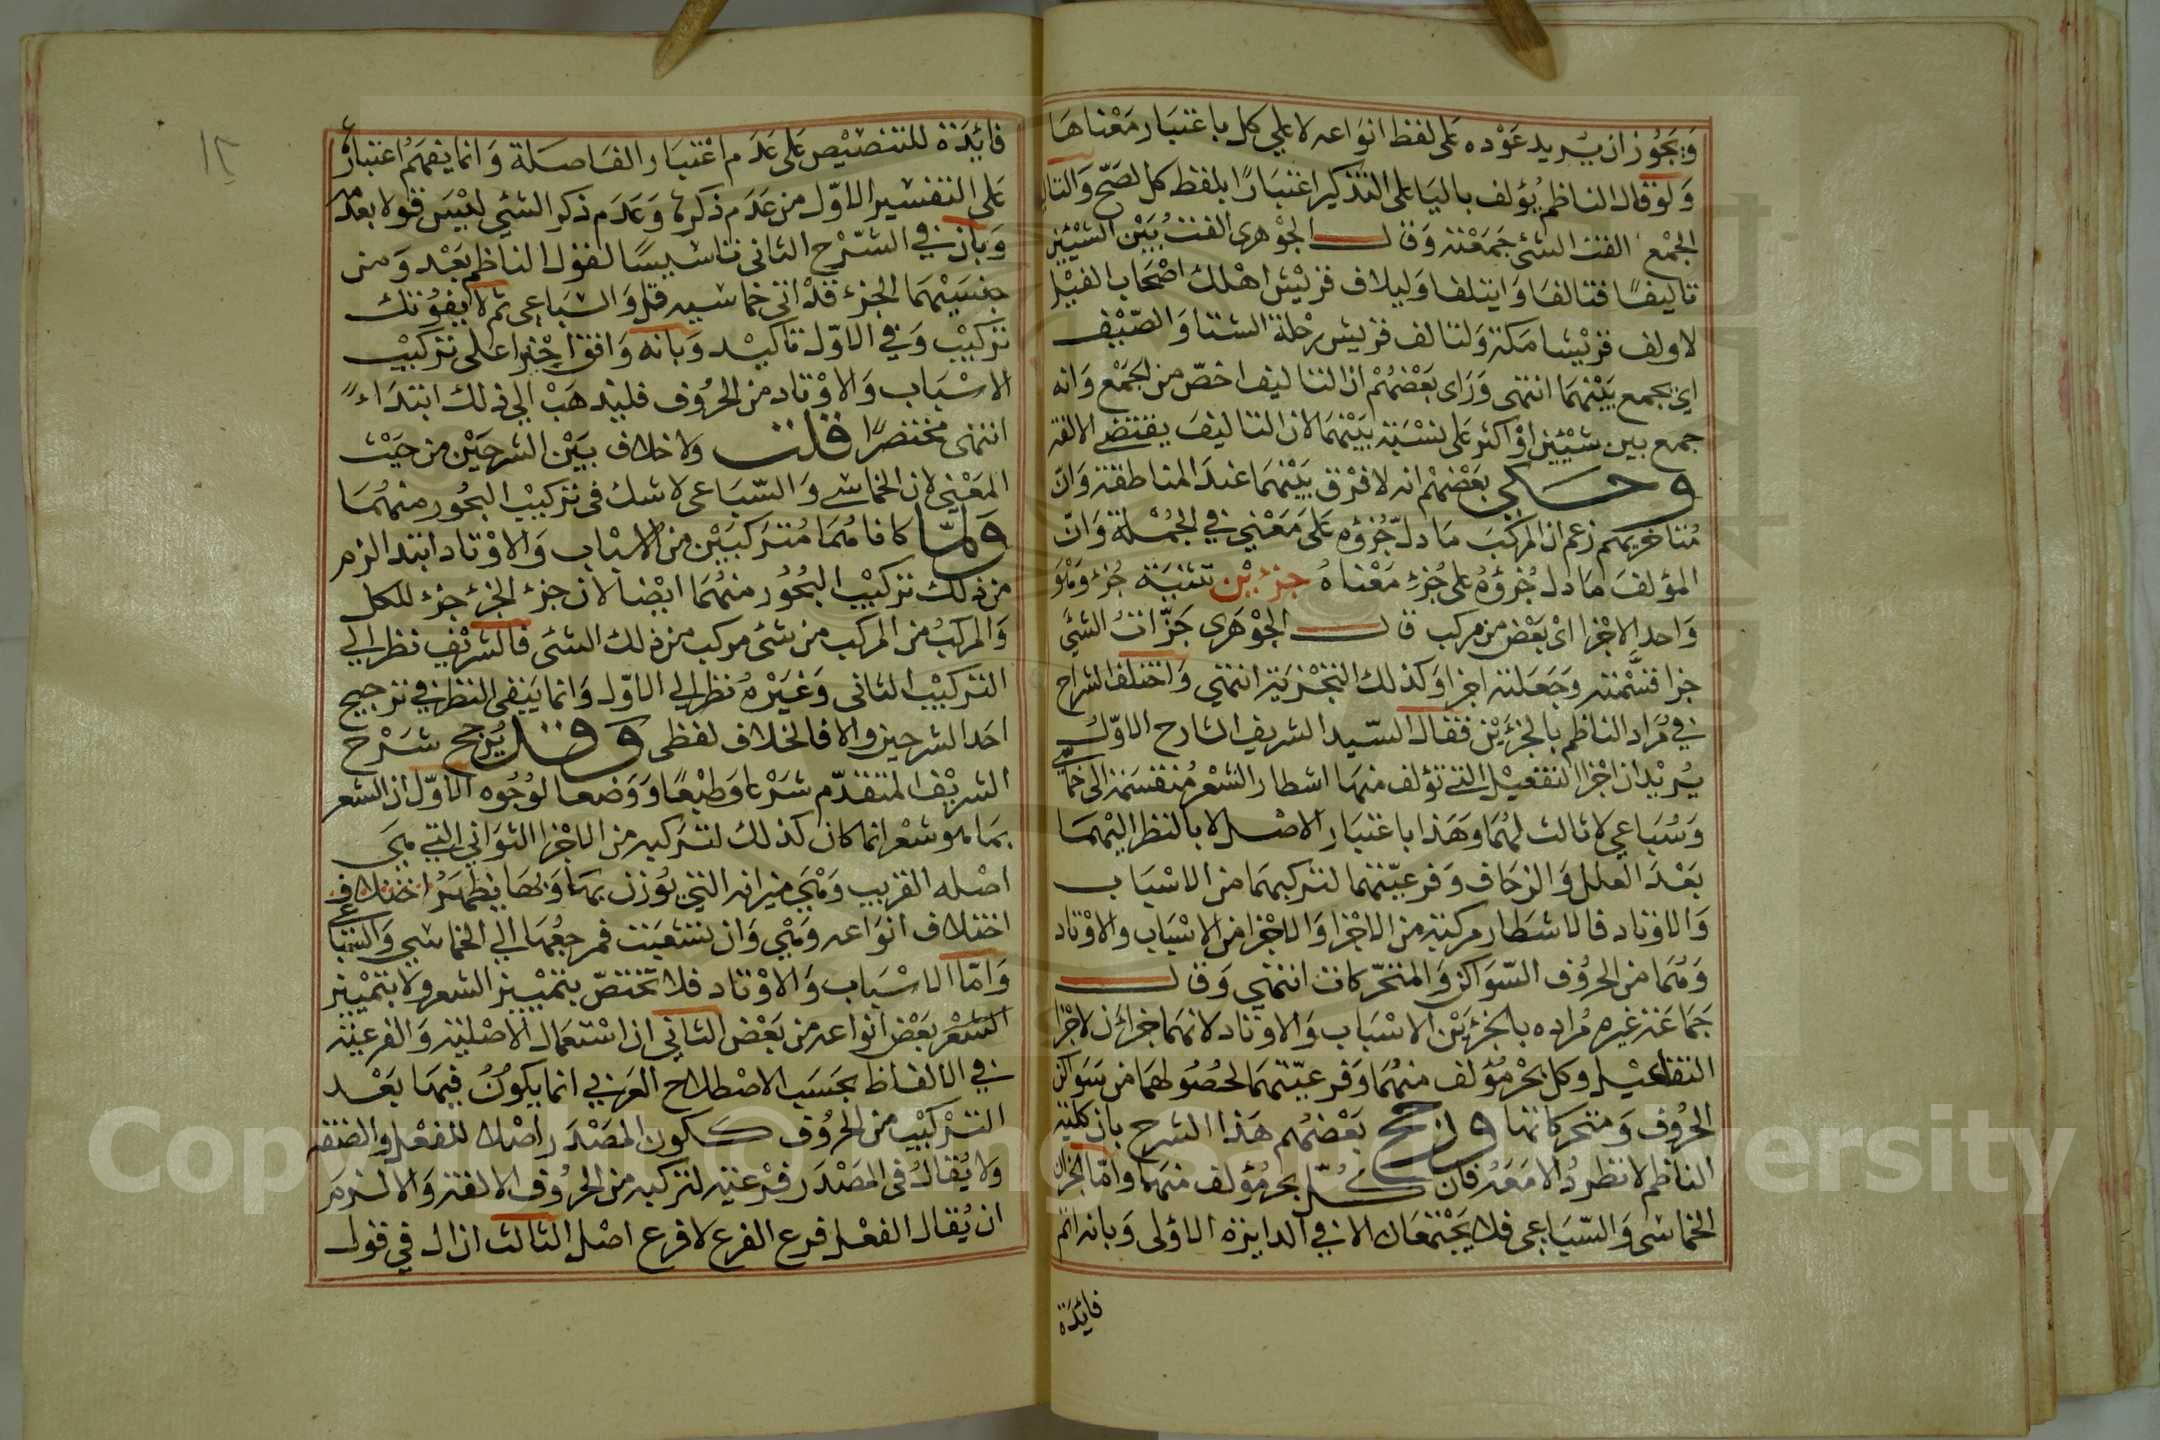 وَيَجُوز ان يُريد عَوْده عَلى لفظ انواعه لا علي كل باعتبَار مَعْناهَا
وَلَوْ قال الناظم يُؤلف باليَا على التذكير اعتبَارًا بلفظ كل لصَحّ وَالتالِ
الجَمْع الفت الشي جَمَعْته وَقال الجوْهري الفتُ بَيْن الشيْئين
تاليفًا فتالفَا وَايتلفا وَليلاف قريْش اهْلك اصْحَاب الفيْل
لاولف قرْيشا مَكة وَلتالف قريش رحْلة الشتا وَالصّيْف
اي يجمع بَيْنهمَا انتهى وَرَاى بَعْضهُمْ ان التاليف اخصّ من الجَمْع وَانه
جمع بين شيْئين اوْ اكثر عَلى نسْبَة بَيْنهمَا لان التاليفَ يقتضي الالفة
وحكي بَعْضهُمْ انه لا فرْق بَيْنهمَا عندَ المناطقة وَانّ
مُتاخريهم زعم ان المركبَ مَا دلّ جُزؤه عَلى مَعْني في الجُمْلة وَانّ
المؤلفَ مَا دل جُزؤهُ على جُزء مَعْناهُ جزءيْن تثنيَة جُزء وَهُوَ
وَاحد الاجْزا ايْ بَعْض من مركب قال الجوْهَري جَزّاتُ الشئ
جزا قسَّمْته وَجَعَلته اجزا وَكذلك التجْزيَة انتهي وَاختلف الشراح
في مُرَاد الناظم بالجزءَيْن فقال السّيد الشريف الشارح الاوّل
يُريْد ان اجْزا التفعيْل التي تؤلف منهَا اشطار الشعْر مُنقسمَة الى خماسي
وَسُبَاعي لا ثالث لهُمَا وَهَذا باعتبَار الاصْل لا بالنظر اليْهمَا
بَعْدَ العلل وَالزحَاف وَفرعيّتهما لتركبهمَا من الاسْبَاب
وَالاوتاد فالاشطار مركبَة من الاجْزا وَالاجْزا من الاسْبَاب والاوْتاد
وَهُمَا من الحرُوف السّوَاكن وَالمتحّركات انتهي وَقال
جَمَاعَة غيره مُراده بالجزءَيْن الاسْبَاب وَالاوتاد لانهمَا جزآن لاجْزا
التفاعيْل وكل بحْر مُؤلف منهُمَا وَفرعيّتهمَا لحصُولهمَا من سَوَاكن
الحرُوف وَمتحركاتها ورجح بَعْضهُم هَذا الشرح بان كلية
الناظم لا تطردُ الا مَعَهُ فان كُلّ بحر مُؤلف منهما وامّا الجزان
الخماسي وَالسّباعي فلا يجْتمعَان الا في الدايرة الاولى وَبانه اتم
فائدة
فائِدَة للتنصيْص عَلى عَدَم اعْتبَار الفاصلة وَانما يفهَمُ اعتبَارهُ
عَلى التفسير الاوّل من عَدَم ذكره وَعَدَم ذكر الشئي ليْسَ قولا بعَدمه
وَبان في الشرْح الثاني تاسيسًا لقول الناظم بَعْد وَمن
جنسَيْهمَا الجزء قدْ اتى خماسيه قل وَالسّبَاعي ثم لا يفوتك
تركيْب وَفي الاوّل تاكيْد وَبانه وَافق اخيرا على تركيْب
الاسْبَاب وَالاوْتاد من الحرُوف فليذهَبْ الي ذلك ابتدَاءً
انتهى مختصرًا قلت ولا خلاف بيْن الشرحَيْن من حَيْث
المعْني لان الخماسي وَالسّبَاعي لا شك في تركيْب البحُور منهُمَا
ولمّا كانا هُمَا مُترَكبَيْن من الاسْباب وَالاوْتاد ابتد الزم
من ذلك تركيْب البُحُور منهُمَا ايْضا لان جزء الجزء جزء للكل
وَالمركبُ من المركب من شئ مركب من ذلك الشئ فالشريْف نظر الي
التركيْب الثاني وَغيْرهُ نظر الي الاوّل وَانما يَبْقي النظر في ترجيح
احَد الشرحين والا فالخلاف لفظي وقد يُرَجح شرْح
الشريْف المتقدّم شَرْعا وَطبْعًا وَوَضعا لوُجُوه الاوّل ان الشعر
بمَا هو شعْر انما كان كذلك لتركبه من الاجْزا الثوَاني التي هِيَ
اصْله القريب وَهْيَ ميزانه التي يُوْزن بهَا وَبهَا يظهَرُ اختلاف
اختلاف انوَاعه وَهْي وَان تشعّبَت فمرجعُهَا الي الخماسي وَالسّبَا
وَامّا الاسْبَاب وَالاوْتاد فلا تختصّ بتمييز الشعر ولا بتمْييز
الشعر بَعْض انواعه من بَعْض الثاني ان اسْتعمال الاصْلية وَالفرعيّة
في الالفاظ بحَسَب الاصْطلاح العَربي انما يكوْنُ فيهَا بَعْد
الترْكيْب من الحرُوف ككون المصْدَر اصْلا للفعْل والصّفة
وَلا يُقالُ في المصْدَر فرْعيّة لتركبه من الحرُوف الالفة وَالا لزم
ان يُقال الفعْل فرع الفرع لا فرع اصْل الثالث ان ال في قول